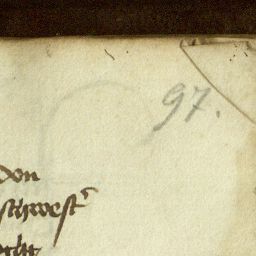 97.
von
schwest